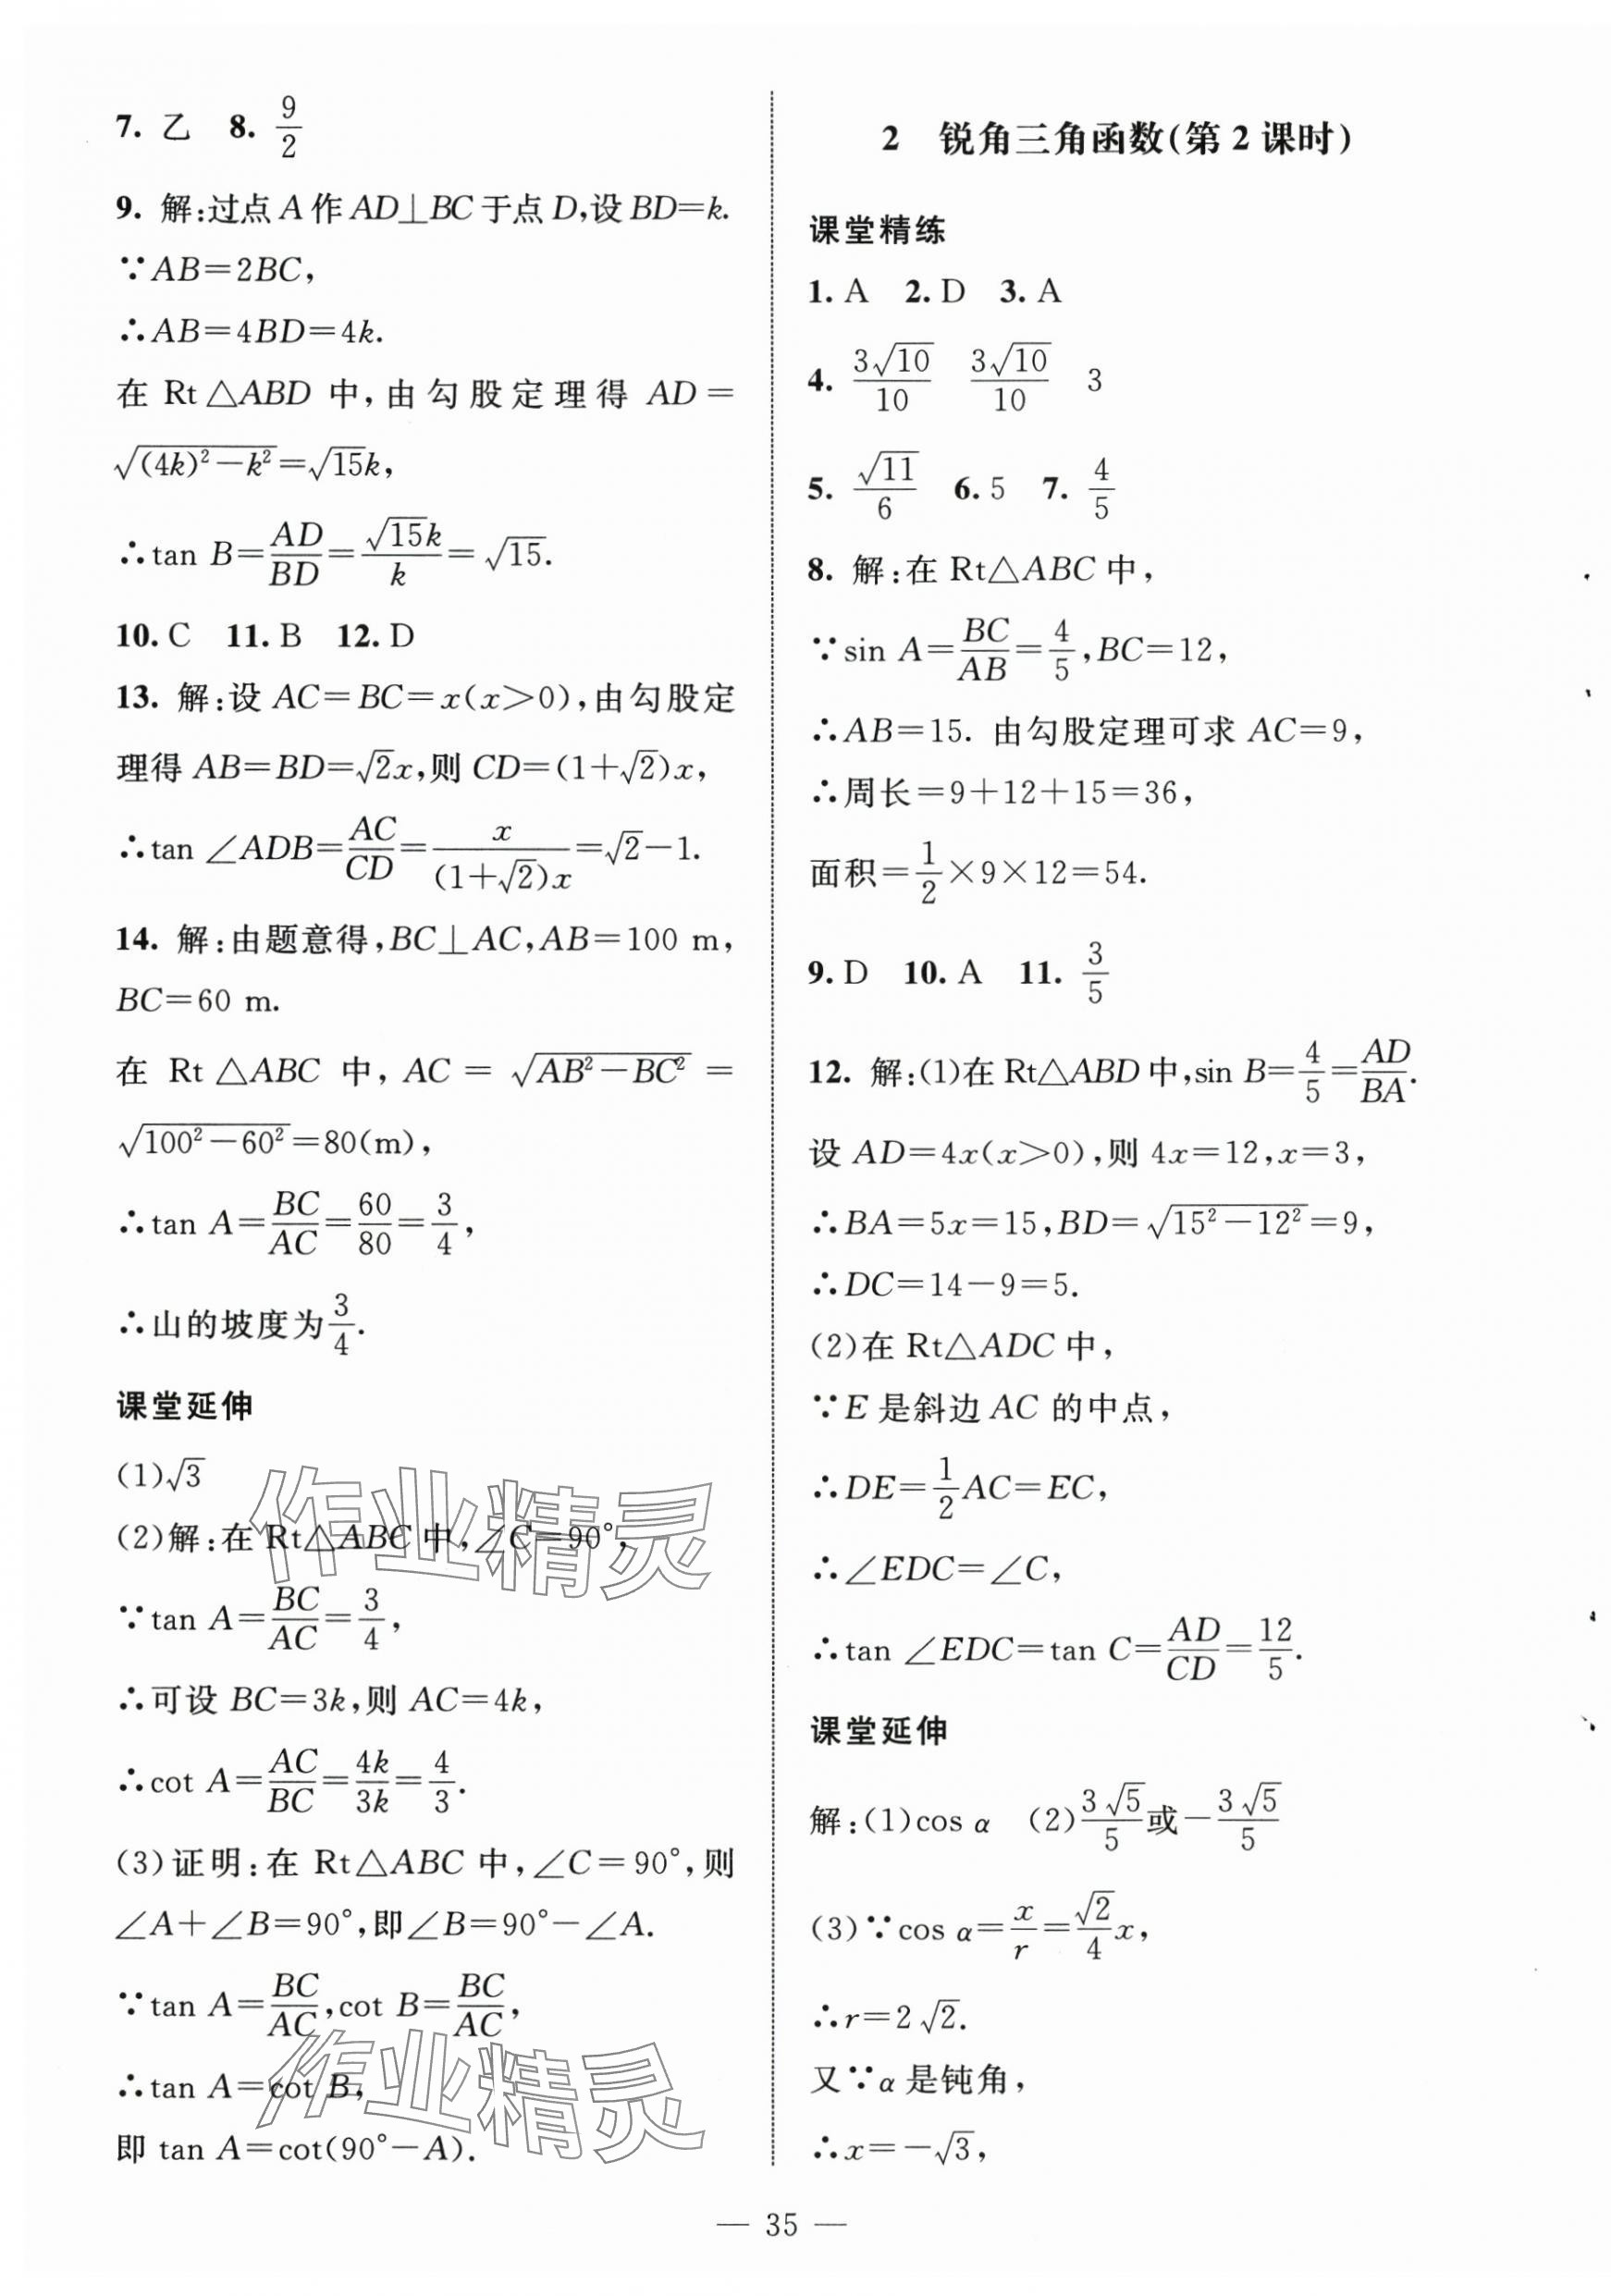 7. 乙 8. 9/2
9. 解:过点 A 作 AD⊥BC 于点 D,设 BD=k.
∵AB=2BC,
∴AB=4BD=4k.
在 Rt△ABD 中,由勾股定理得 AD=
√((4k)²-k²)=√15k,
∴tan B=AD/BD=√15k/k=√15.
10. C 11. B 12. D
13. 解:设 AC=BC=x(x>0),由勾股定
理得 AB=BD=√2x,则 CD=(1+√2)x,
∴tan ∠ADB=AC/CD=x/((1+√2)x)=√2-1.
14. 解:由题意得,BC⊥AC,AB=100 m,
BC=60 m.
在 Rt△ABC 中,AC=√(AB²-BC²)=
√(100²-60²)=80(m),
∴tan A=BC/AC=60/80=3/4,
∴山的坡度为3/4.
课堂延伸
(1)√3
(2)解:在 Rt△ABC 中,∠C=90°,
∵tan A=BC/AC=3/4,
∴可设 BC=3k,则 AC=4k,
∴cot A=AC/BC=4k/3k=4/3.
(3)证明:在 Rt△ABC 中,∠C=90°,则
∠A+∠B=90°,即∠B=90°-∠A.
∵tan A=BC/AC,cot B=BC/AC,
∴tan A=cot B,
即 tan A=cot(90°-A).
作业精灵
作业精灵
2 锐角三角函数(第 2 课时)
课堂精练
1. A 2. D 3. A
4. 3√10/10 3√10/10 3
5. √11/6 6. 5 7. 4/5
8. 解:在 Rt△ABC 中,
∵sin A=BC/AB=4/5,BC=12,
∴AB=15. 由勾股定理可求 AC=9,
∴周长=9+12+15=36,
面积=1/2×9×12=54.
9. D 10. A 11. 3/5
12. 解:(1)在 Rt△ABD 中,sin B=4/5=AD/BA.
设 AD=4x(x>0),则 4x=12,x=3,
∴BA=5x=15,BD=√(15²-12²)=9,
∴DC=14-9=5.
(2)在 Rt△ADC 中,
∵E 是斜边 AC 的中点,
∴DE=1/2AC=EC,
∴∠EDC=∠C,
∴tan ∠EDC=tan C=AD/CD=12/5.
课堂延伸
解:(1)cos α (2)3√5/5或-3√5/5
(3)∵cos α=x/r=√2/4x,
∴r=2√2.
又∵α 是钝角,
∴x=-√3,
— 35 —